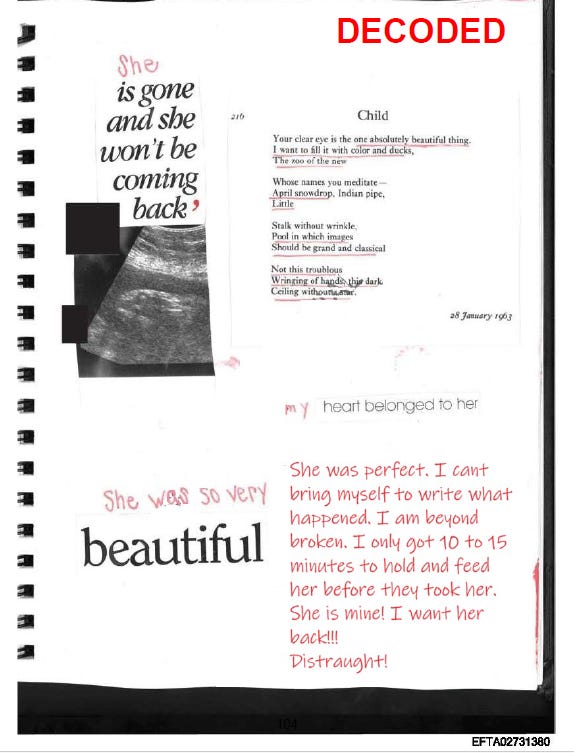 DECODED
She
is gone
and she
won't be
coming
back,
216
Child
Your clear eye is the one absolutely beautiful thing.
I want to fill it with color and ducks,
The zoo of the new
Whose names you meditate—
April snowdrop, Indian pipe,
Little
Stalk without wrinkle,
Pool in which images
Should be grand and classical
Not this troublous
Wringing of hands, this dark
Ceiling without a star.
28 January 1963
my heart belonged to her
She was so very
beautiful
She was perfect. I cant
bring myself to write what
happened. I am beyond
broken. I only got 10 to 15
minutes to hold and feed
her before they took her.
She is mine! I want her
back!!!
Distraught!
104
EFTA02731380